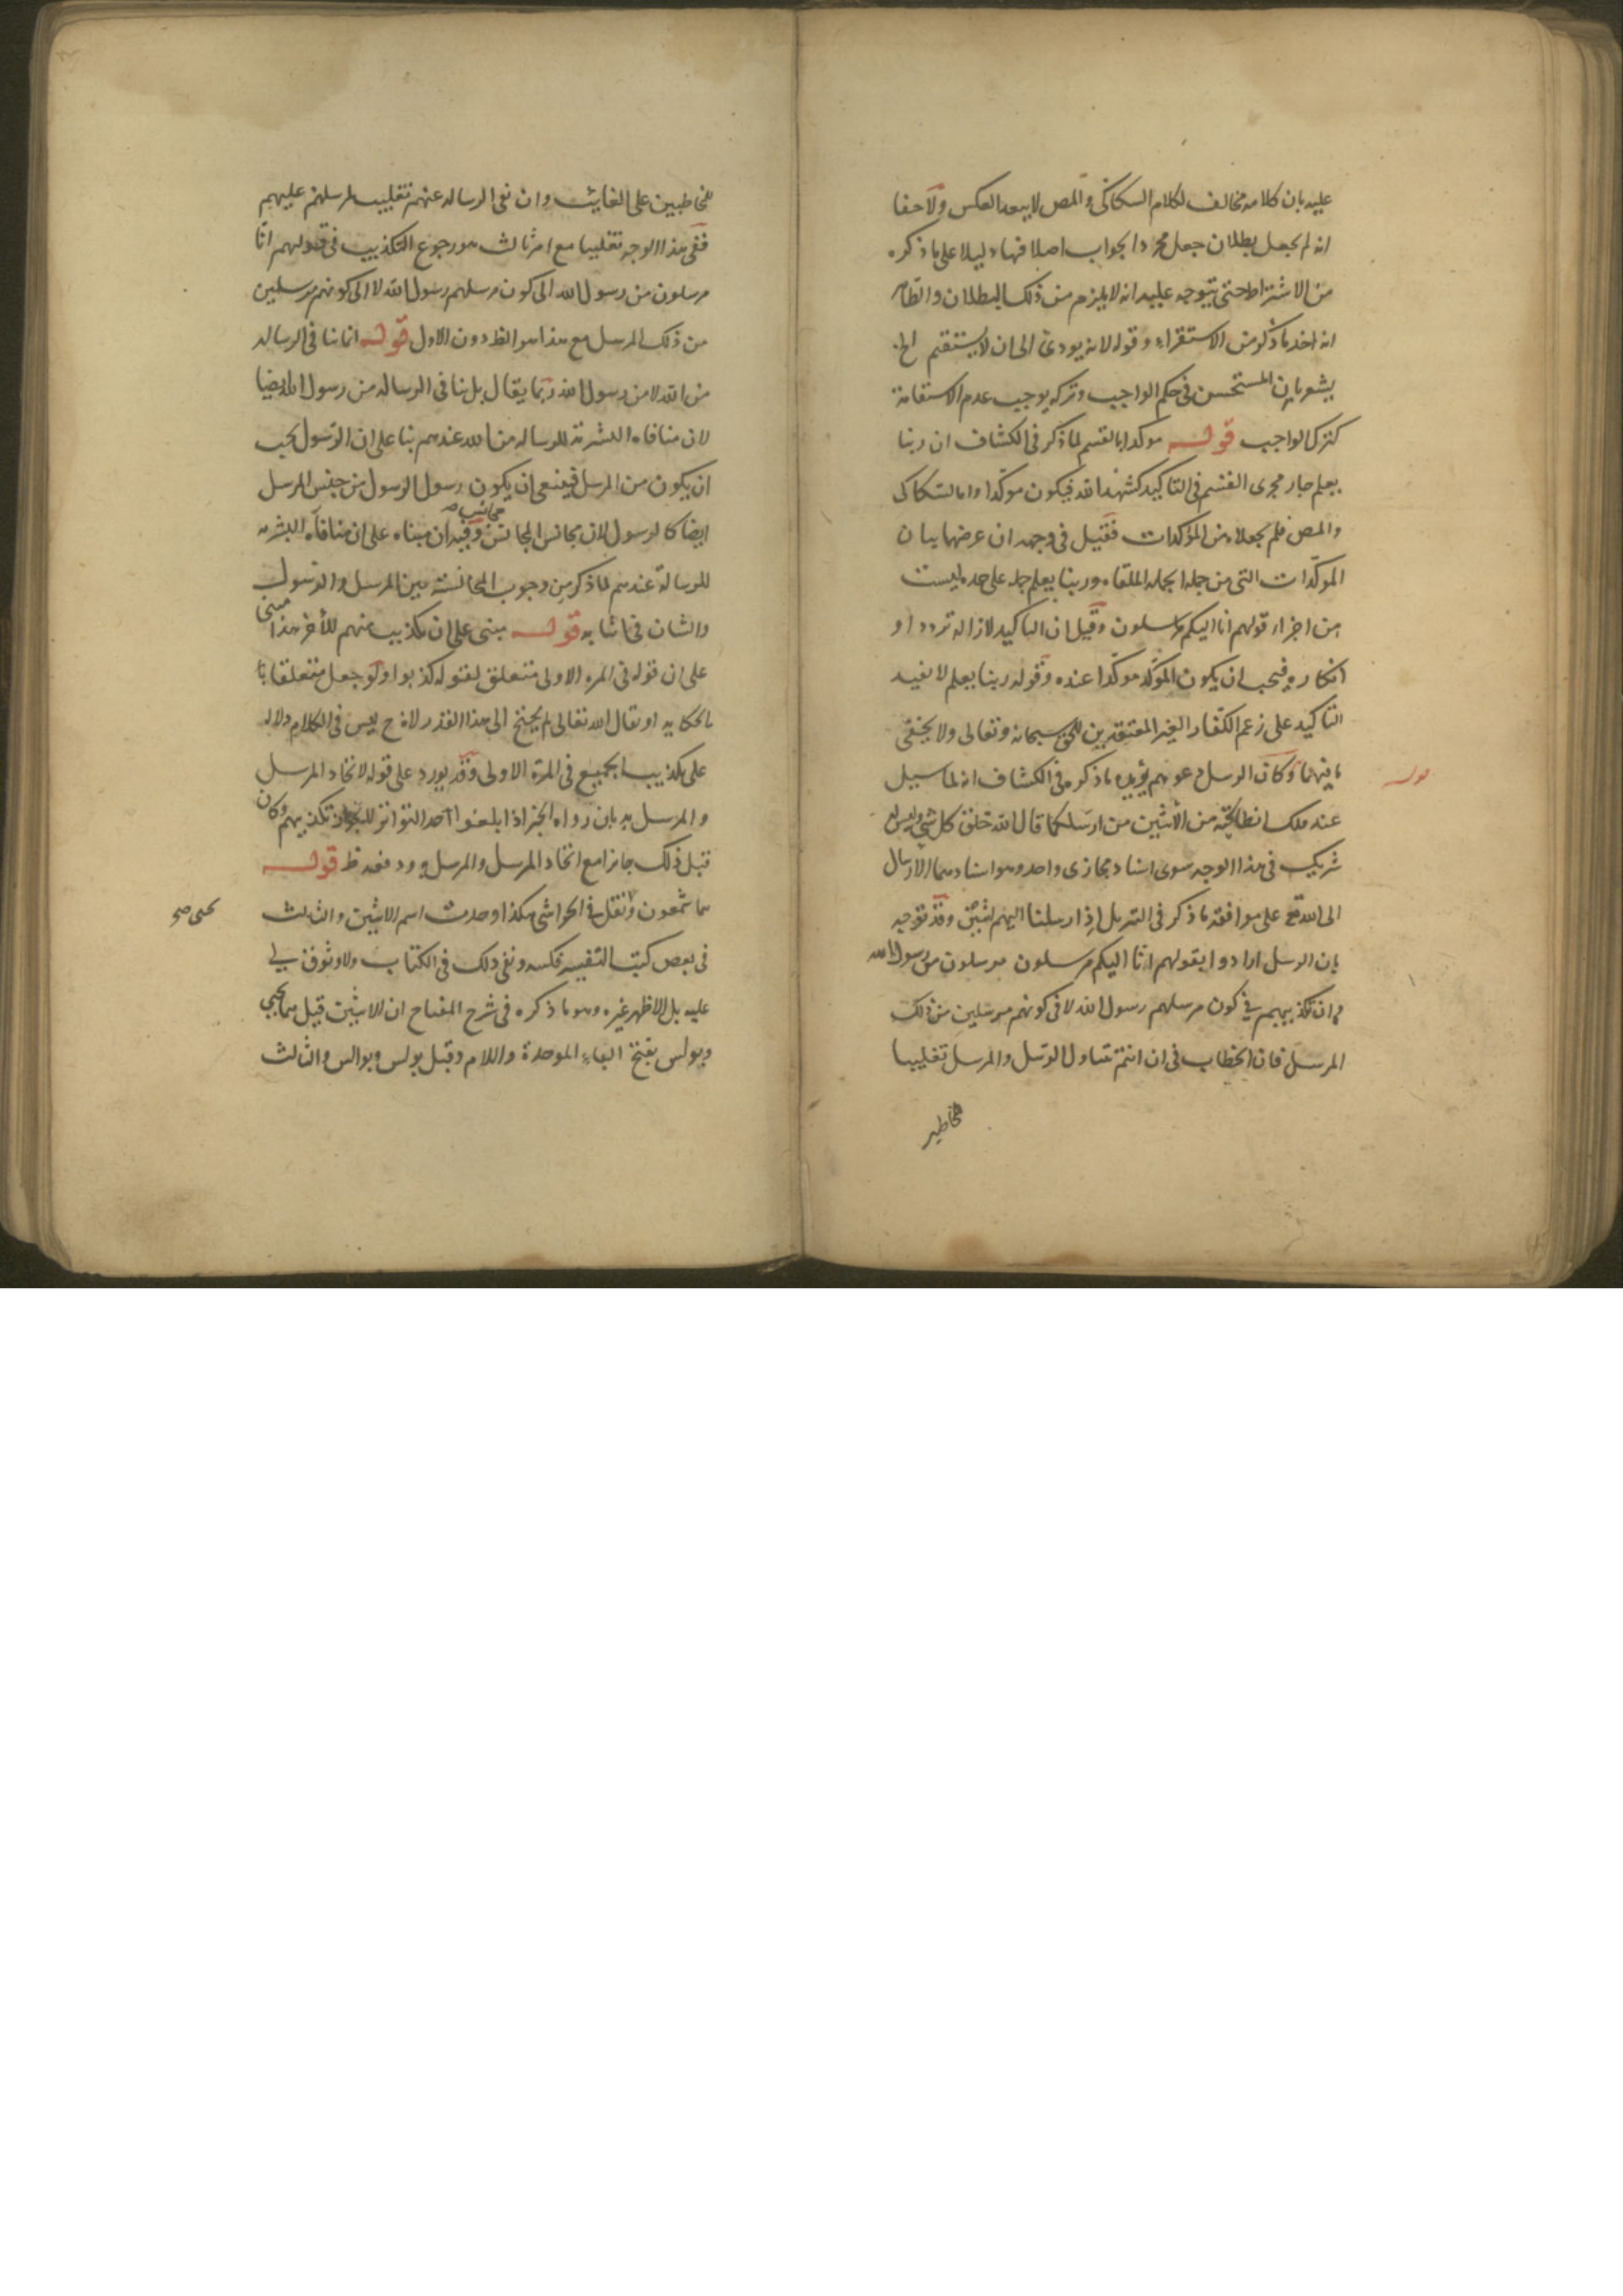 عليه بان كلامه مخالف لكلام السكاكى والمص لا يبعد العكس ولا خفا
انه لم يجعل بطلان جعل مجرد الجواب اصلا فيها دليلا على ما ذكره
من الاشتراط حتى يتوجه عليه انه لا يلزم من ذلك البطلان والظاهر
انه اخذ ما ذكر من الاستقراء وقوله لانه يودى الى ان لا يستقيم الخ
يشعر بان المستحسن فى حكم الواجب وتركه يوجب عدم الاستقامة
كترك الواجب قوله موكدا بالقسم لما ذكر فى الكشاف ان ربنا
يعلم جار مجرى القسم فى التاكيد كشهد الله فيكون موكدا واما السكاكى
والمص فلم يجعلاه من المؤكدات فقيل فى وجهه ان غرضهما بيان
الموكدات التى من جملة الجملة الملقاه وربنا يعلم جملة على حده ليست
من اجزاء قولهم انا اليكم مرسلون وقيل ان التاكيد لازالة تردد او
انكار فيجب ان يكون الموكد موكدا عنده وقوله ربنا يعلم لا يفيد
التاكيد على زعم الكفار الغير المعتقدين للحق سبحانه وتعالى ولا يخفى
ما فيهما قوله وكان الرسل دعوهم يؤيده ما ذكره فى الكشاف انه لما سيل
عند ملك انطاكية من الاثنين من ارسلكما قال الله خلق كل شئ وليس له
شريك فى هذا الوجه سوى اسناد مجازى واحد وهو اسناد هما الارسال
الى الله تع على موافقة ما ذكر فى التنزيل اذ ارسلنا اليهم اثنين وقد توجيه
بان الرسل ارادوا بقولهم انا اليكم مرسلون مرسلون من رسول الله
وان تكذيبهم فى كون مرسلهم رسول الله لا فى كونهم مرسلين من ذلك
المرسل فان الخطاب فى ان انتم تتناول الرسل والمرسل تغليبا
للمخاطبين على الغايب وان نفى الرسالة عنهم تغليب لمرسلهم عليهم
ففى هذا الوجه تغليبا مع امر ثالث هو رجوع التكذيب فى قولهم انا
مرسلون من رسول الله الى كون مرسلهم رسول الله لا الى كونهم مرسلين
من ذلك المرسل مع هذا هو الظ دون الاول قوله انما ينافى الرساله
من الله لا من رسول الله ربما يقال بل ينافى الرساله من رسول الله ايضا
لان منافاه البشرية للرساله من الله عندهم بنا على ان الرسول يجب
ان يكون من المرسل فينبغى ان يكون رسول الرسول من جنس المرسل
ايضا كالرسول لان مجانس المجانس مجانس وفيه ان مبناه على ان منافاة البشريه
للرسالة عندهم لما ذكر من وجوب المجانسة بين المرسل والرسول
والشان فى اثباته قوله مبنى على ان تكذيب منهم للأخر هذا مبنى
على ان قوله فى المره الاولى متعلق بقوله كذبوا ولو جعل متعلقا با
بالحكاية او بقال الله تعالى لم يحتج الى هذا القدر لانه ح ليس فى الكلام دلاله
على تكذيب الجميع فى المرة الاولى وقد يورد على قوله لاتحاد المرسل
والمرسل به بان رواة الخبر اذا بلغوا احد التواتر تكذيبهم وكان
قبل ذلك جائزا مع اتحاد المرسل والمرسل به ودفعه ظ قوله
هما شمعون ويحيى ونقل فى الحواشى هكذا وجدت اسم الاثنين والثالث
فى بعض كتب التفسير عكسه ونفى ذلك فى الكتاب ولا وثوق لى
عليه بل الاظهر غيره وهو ما ذكره فى شرح المفتاح ان الاثنين قيل هما يحيى
وبولس بفتح الباء الموحدة واللام وقيل بولس وبوالس والثالث